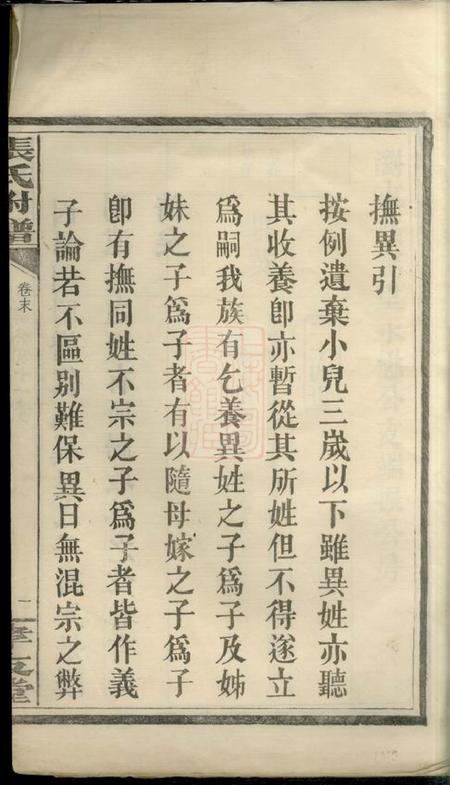 撫異引
按例遺棄小兒三歲以下雖異姓亦聽
其收養卽亦暫從其所姓但不得遂立
爲嗣我族有乞養異姓之子爲子及姊
妹之子爲子者有以隨母嫁之子爲子
卽有撫同姓不宗之子爲子者皆作義
子論若不區别難保異日無混宗之弊
張氏附譜
卷末
一